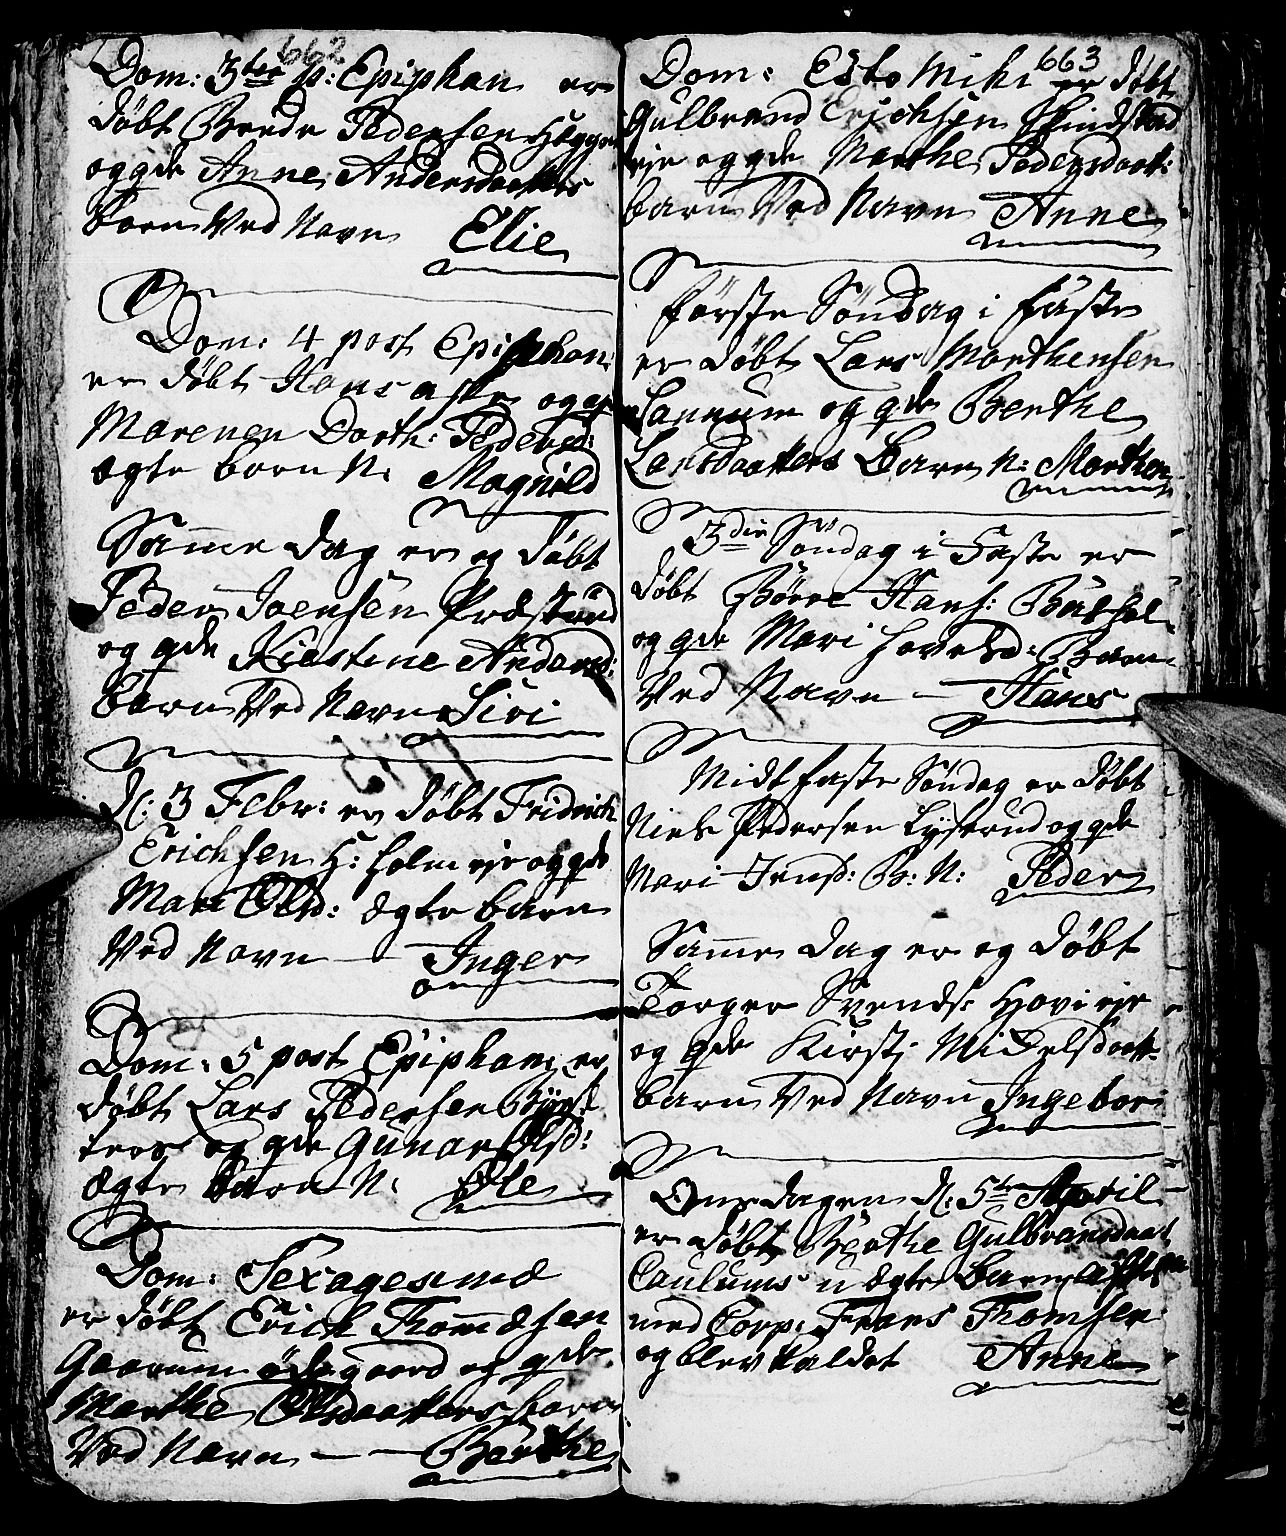 662
Dom: 3tie p: Epiphan er
døbt Brede Pedersen
og gde Anne Andersdaatters
barn Ved Navn Elie
Dom: 4 post Epiphan:
er døbt Hans og
Marenen Dorth: Pedersd:
ægte barn N: Magnild
Samme dag er og døbt
Peder Joensen Præstrud
og gde Kiestine Andersd:
barn Ved Navn Siri
1775
d: 3 Febr: er døbt Fridrich
Erichsen H: holm eje og gde
Mari Olsd: ægte barn
Ved Navn — Inger
Dom: 5 post Epiphan: er
døbt Lars Pedersen
og gde Gunar Olsd:
ægte barn N: Ole
Dom: Sexagesimæ
er døbt Erich Thomæsen
Gaarum ødegaard og gde
Marthe Olsdaatters barn
Ved Navn — — Berthe
663
Dom: Esto Mihi er døbt
Gulbrand Erichsen Skindstad
eje og gde Marthe Pedersdaatt:
barn Ved Navn Anne
Første Søndag i faste
er døbt Lars Morthensen
Lannum og gde Berthe
Larsdaatters Barn N: Morthen
3die Søndag i Faste er
døbt Børre Hans:
og gde Mari Barn
Ved Navn — Hans
Midtfaste Søndag er døbt
Niels Pedersen Lyserud og gde
Mari Jensd: B: N: Peder
Samme dag er og døbt
Torger Svends: Hjovi eje
og gde Kirsti Mickelsdaatt:
barn Ved Navn Ingebor
Onsdagen d: 5te April
er døbt Berthe Gulbransdaat
Caulums uægte barn
med Corp: Frans Thomsen
og blev kaldet Anne